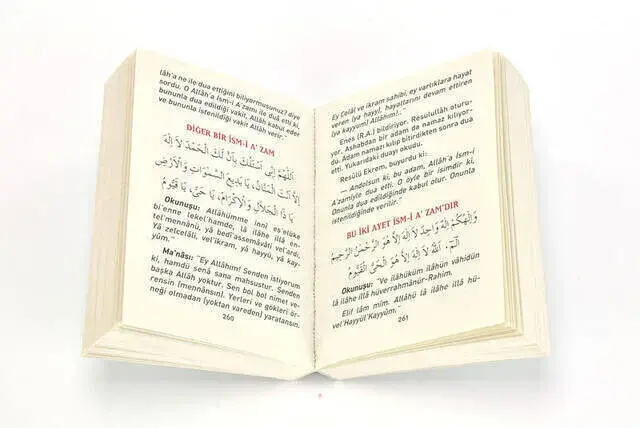 lâh'a ne ile dua ettiğini biliyormusunuz? diye
sordu. O Allâh'a İsm-i A'zamı ile duâ etti ki,
bununla dua edildiği vakit, Allâh kabul eder
ve bununla istenildiği vakit Allâh verir."
DİĞER BİR İSM-İ A' ZAM
اَللّٰهُمَّ اِنّٖى اَسْئَلُكَ بِاَنَّ لَكَ الْحَمْدَ لَا اِلٰهَ
اِلَّا اَنْتَ الْمَنَّانُ، يَا بَدِيعَ السَّمٰوَاتِ وَالْاَرْضِ
يَا ذَا الْجَلَالِ وَالْاِكْرَامِ، يَا حَىُّ، يَا قَيُّومُ
Okunuşu: "Allâhümme innî es'elüke
bi'enne lekel'hamde, lâ ilâhe illâ en-
tel'mennânü, yâ bedî'assemâvâti vel'ardı,
Yâ zelcelâli, vel'ikram, yâ hayyü, yâ kay-
yûm."
Ma'nâsı: "Ey Allâhım! Senden istiyorum
ki, hamdü senâ sana mahsustur. Senden
başka Allâh yoktur. Sen bol bol nimet ve-
rensin (mennânsın). Yerleri ve gökleri ör-
neği olmadan (yoktan vareden) yaratansın.
260
Ey Celâl ve ikram sahibi, ey varlıklara hayat
veren (ya hayy), hayatlarını devam ettiren
(ya kayyûm) Allâhım!.."
Enes (R.A.) bildiriyor. Resûlullâh oturu-
yor. Ashabdan bir adam da namaz kılıyor-
du. Adam namazı kılıp bitirdikten sonra dua
etti. Yukarıdaki duayı okudu.
Resûlü Ekrem, buyurdu ki:
— Andolsun ki, bu adam, Allâh'a İsm-i
A'zamiyle dua etti. O öyle bir isimdir ki,
Onunla dua edildiğinde kabul olur. Onunla
istenildiğinde verilir."
BU İKİ AYET İSM-İ A' ZAM'DIR
وَاِلٰهُكُمْ اِلٰهٌ وَاحِدٌ لَا اِلٰهَ اِلَّا هُوَ الرَّحْمٰنُ الرَّحٖيمُ
الٓمٓ، اَللّٰهُ لَا اِلٰهَ اِلَّا هُوَ الْحَىُّ الْقَيُّومُ
Okunuşu: "Ve ilâhüküm ilâhün vâhidün
lâ ilâhe illâ hüverrahmânür-Rahim.
Elif lâm mîm. Allâhü lâ ilâhe illâ hü-
vel'Hayyül'Kayyûm."
261